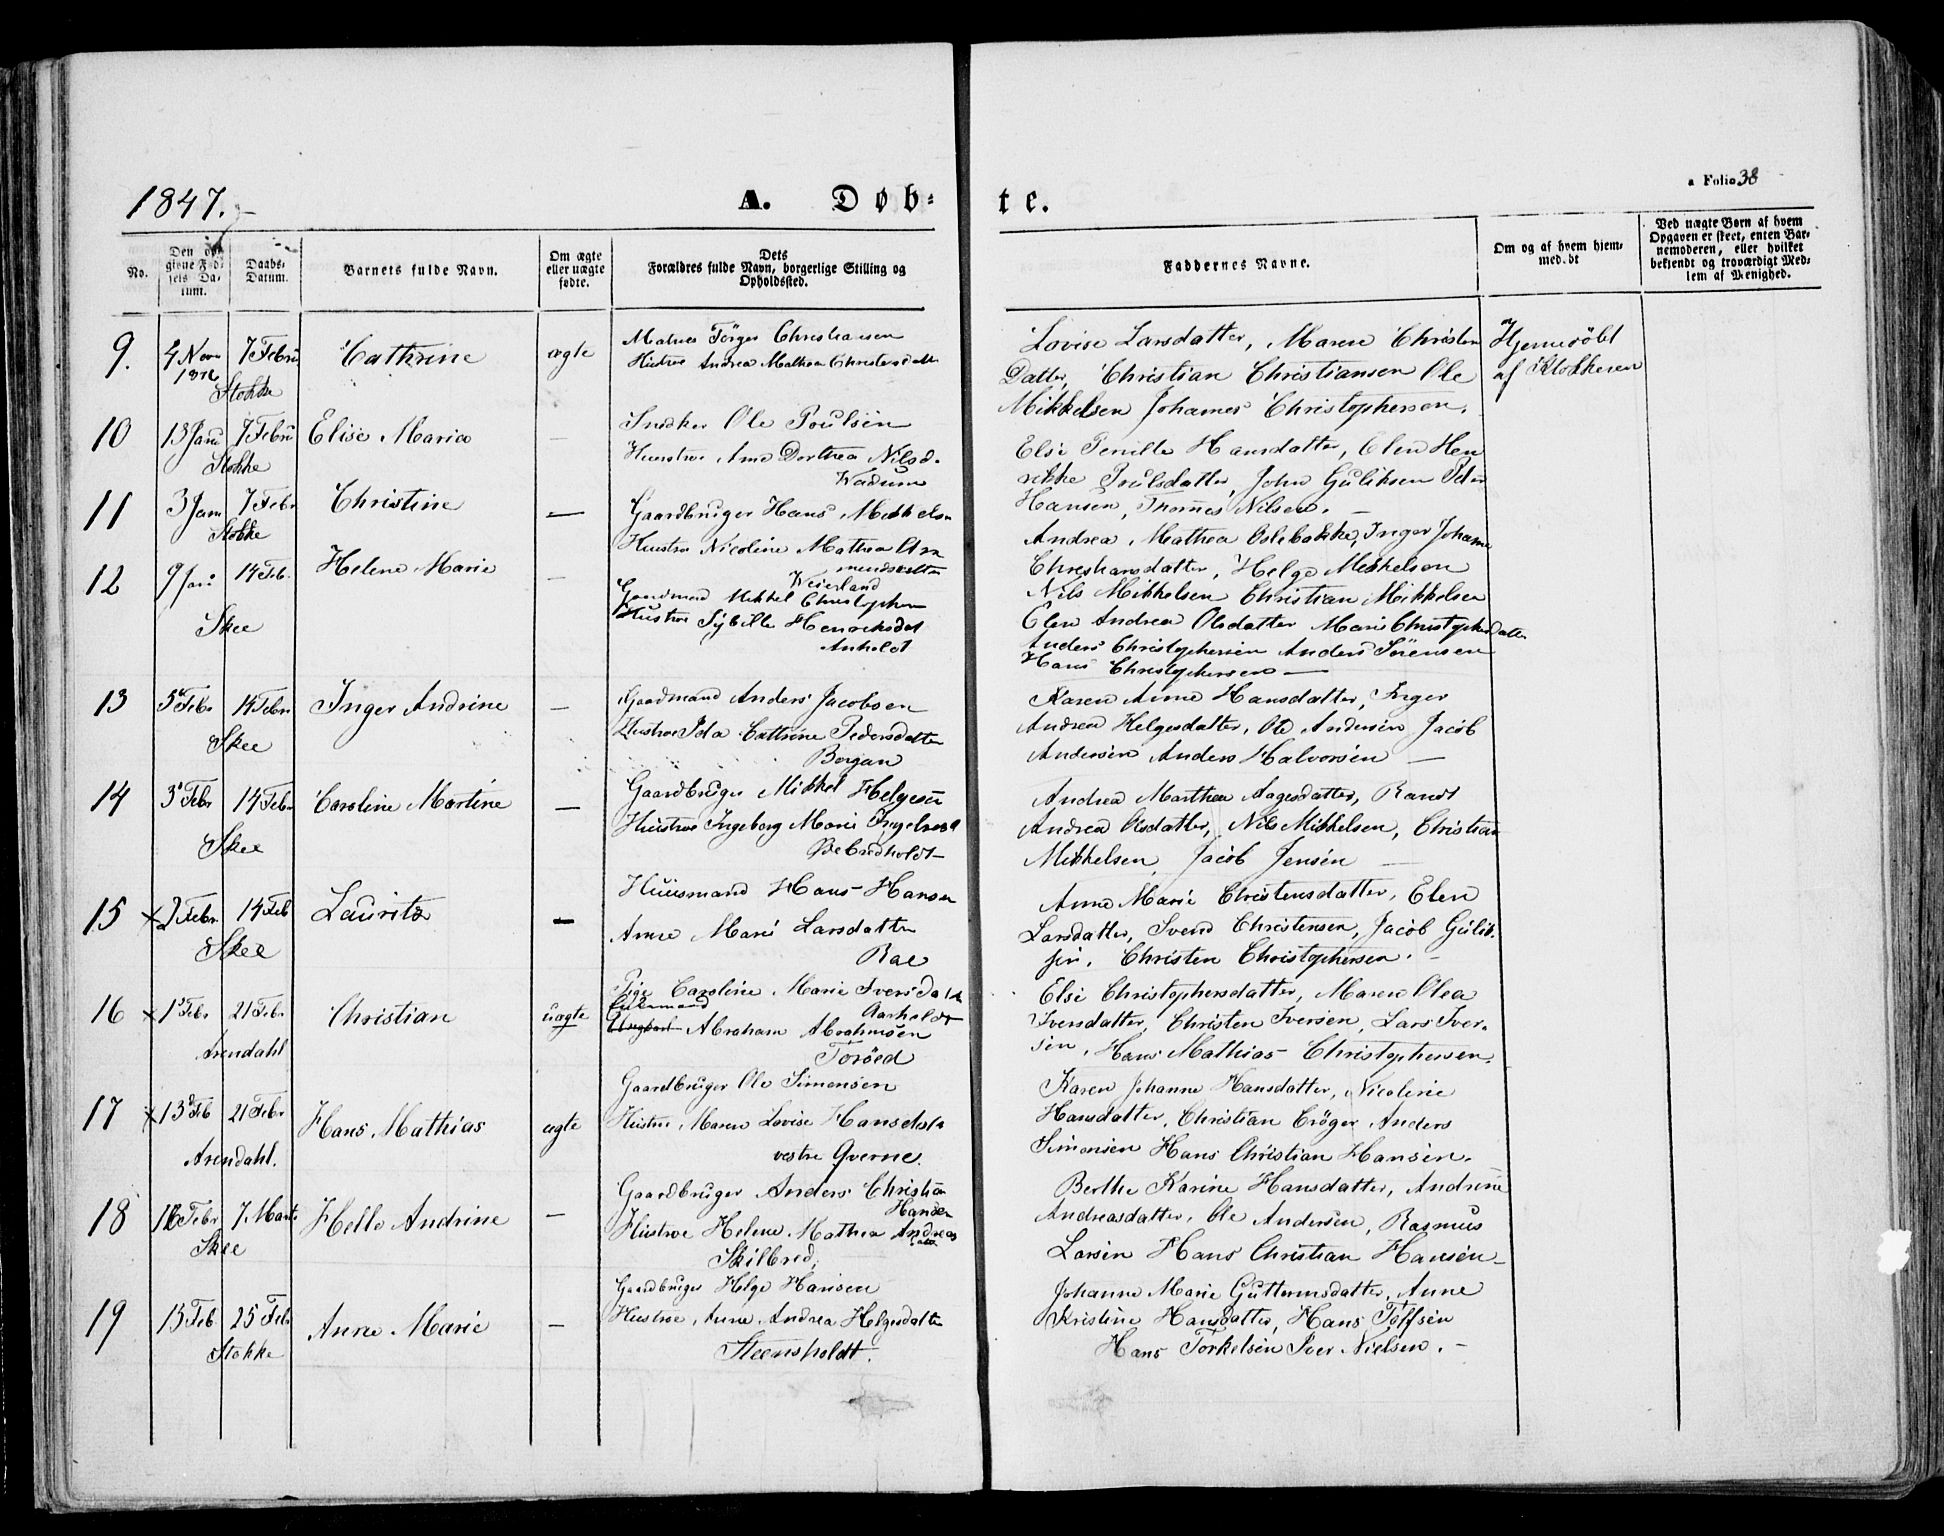 1847.
A. Døb-
te.
Folio 38
No.
Den op-
givne Fød-
sels Da-
tum.
Daabs-
Datum.
Barnets fulde Navn.
Om ægte
eller uægte
fødte.
Dets
Forældres fulde Navn, borgerlige Stilling og
Opholdssted.
Faddernes Navne.
Om og af hvem hjem-
medøbt
Ved uægte Børn af hvem
Opgaven er skeet, enten Bar-
nemoderen, eller hvilket
bekjendt og troværdigt Med-
lem af Menighed.
9. 7 Febru Cathrine ægte
Stokke
Christiansen
Hustroe Andrea Mathea
Lovise Larsdatter, Maren Christen
Datter, Christian Christiansen Ole
Mikkelsen Johannes Christophersen.
Hjemmedöbt
af Klokkeren
10 13 Janu 7 Febru Elise Maria —
Stokke
Snedker Ole Poulsen
Hustroe Anne Dorthea Nilsd.
Wadum
Else Pernille Hansdatter, Elen Hen
rikke Poulsdatter, John Guliksen Peder
Hansen, Thomes Nilsen. —
11 3 Jan 7 Febr Christine —
Stokke
Gaardbruger Hans Mikkelsen
Hustroe Nicoline Mathea
Weierland
Andrea Mathea Oslebakke, Inger Johanne
Christiansdatter, Helge Mikkelsen
Nils Mikkelsen Christian Mikkelsen
12 9 Jan 14 Feb. Helene Marie —
Skee
Gaardmand Mikkel Christophersen
Hustroe Sybille Henriksdat
Anholdt
Elen Andrea Olsdatter Maris Christophersdatter
Anders Christophersen Anders Sörensen
Hans Christophersen —
13 5 Febr 14 Febr Inger Andrine —
Skee
Gaardmand Anders Jacobsen
Hustroe Ida Cathrine Pedersdatter
Borgan
Karen Anne Hansdatter, Inger
Andrea Helgesdatter, Ole Andersen Jacob
Andersen Anders Halvorsen —
14 3 Febr 14 Febr Caroline Martine —
Skee
Gaardbruger Mikkel Helgesen
Hustroe Ingeborg Marie
Andrea Marthea Aagesdatter, Randi
Andrea Olsdatter, Nils Mikkelsen, Christian
Mikkelsen Jacob Jensen —
15 x 2 Febr. 14 Feb Lauritz —
Skee
Huusmand Hans Hansen
Anne Marie Larsdatter
Rae
Anne Marie Christensdatter, Elen
Larsdatter, Svend Christensen, Jacob Gulik-
sen, Christen Christophersen. —
16 x 1 Febr 21 Febr Christian uægte
Arendahl
Pige Caroline Marie Iversdatr
Aarholdt
Ungkarl Abraham Abrahmsen
Toröed
Else Christophersdatter, Maren Olea
Iversdatter, Christen Iversen, Lars Iver-
sen, Hans Mathias Christophersen.
17 x 13 Feb 21 Febr Hans Mathias ægte
Arendahl.
Gaardbruger Ole Simensen
Hustroe Maren Lovise Hansdatr
vestre Qverne.
Karen Johanne Hansdatter, Nicoline
Hansdatter, Christian Cröger Anders
Simensen Hans Christian Hansen.
18 16 Febr 7 Marts Helle Andrine —
Skee
Gaardbruger Anders Christian
Hansen
Hustroe Helene Mathea Andreas
datr
Skilbred,
Berthe Karine Hansdatter, Andrine
Andreasdatter, Ole Andersen, Rasmus
Larsen Hans Christian Hansen —
19 13 Feb 25 Feb Anne Marie —
Stokke
Gaardbruger Helge Hansen
Hustroe Anne Andrea Helgesdatter
Steensholdt.
Johanne Marie Guttermsdatter, Anne
Kristine Hansdatter, Hans Toffsen
Hans Torkelsen Iver Nielsen. —